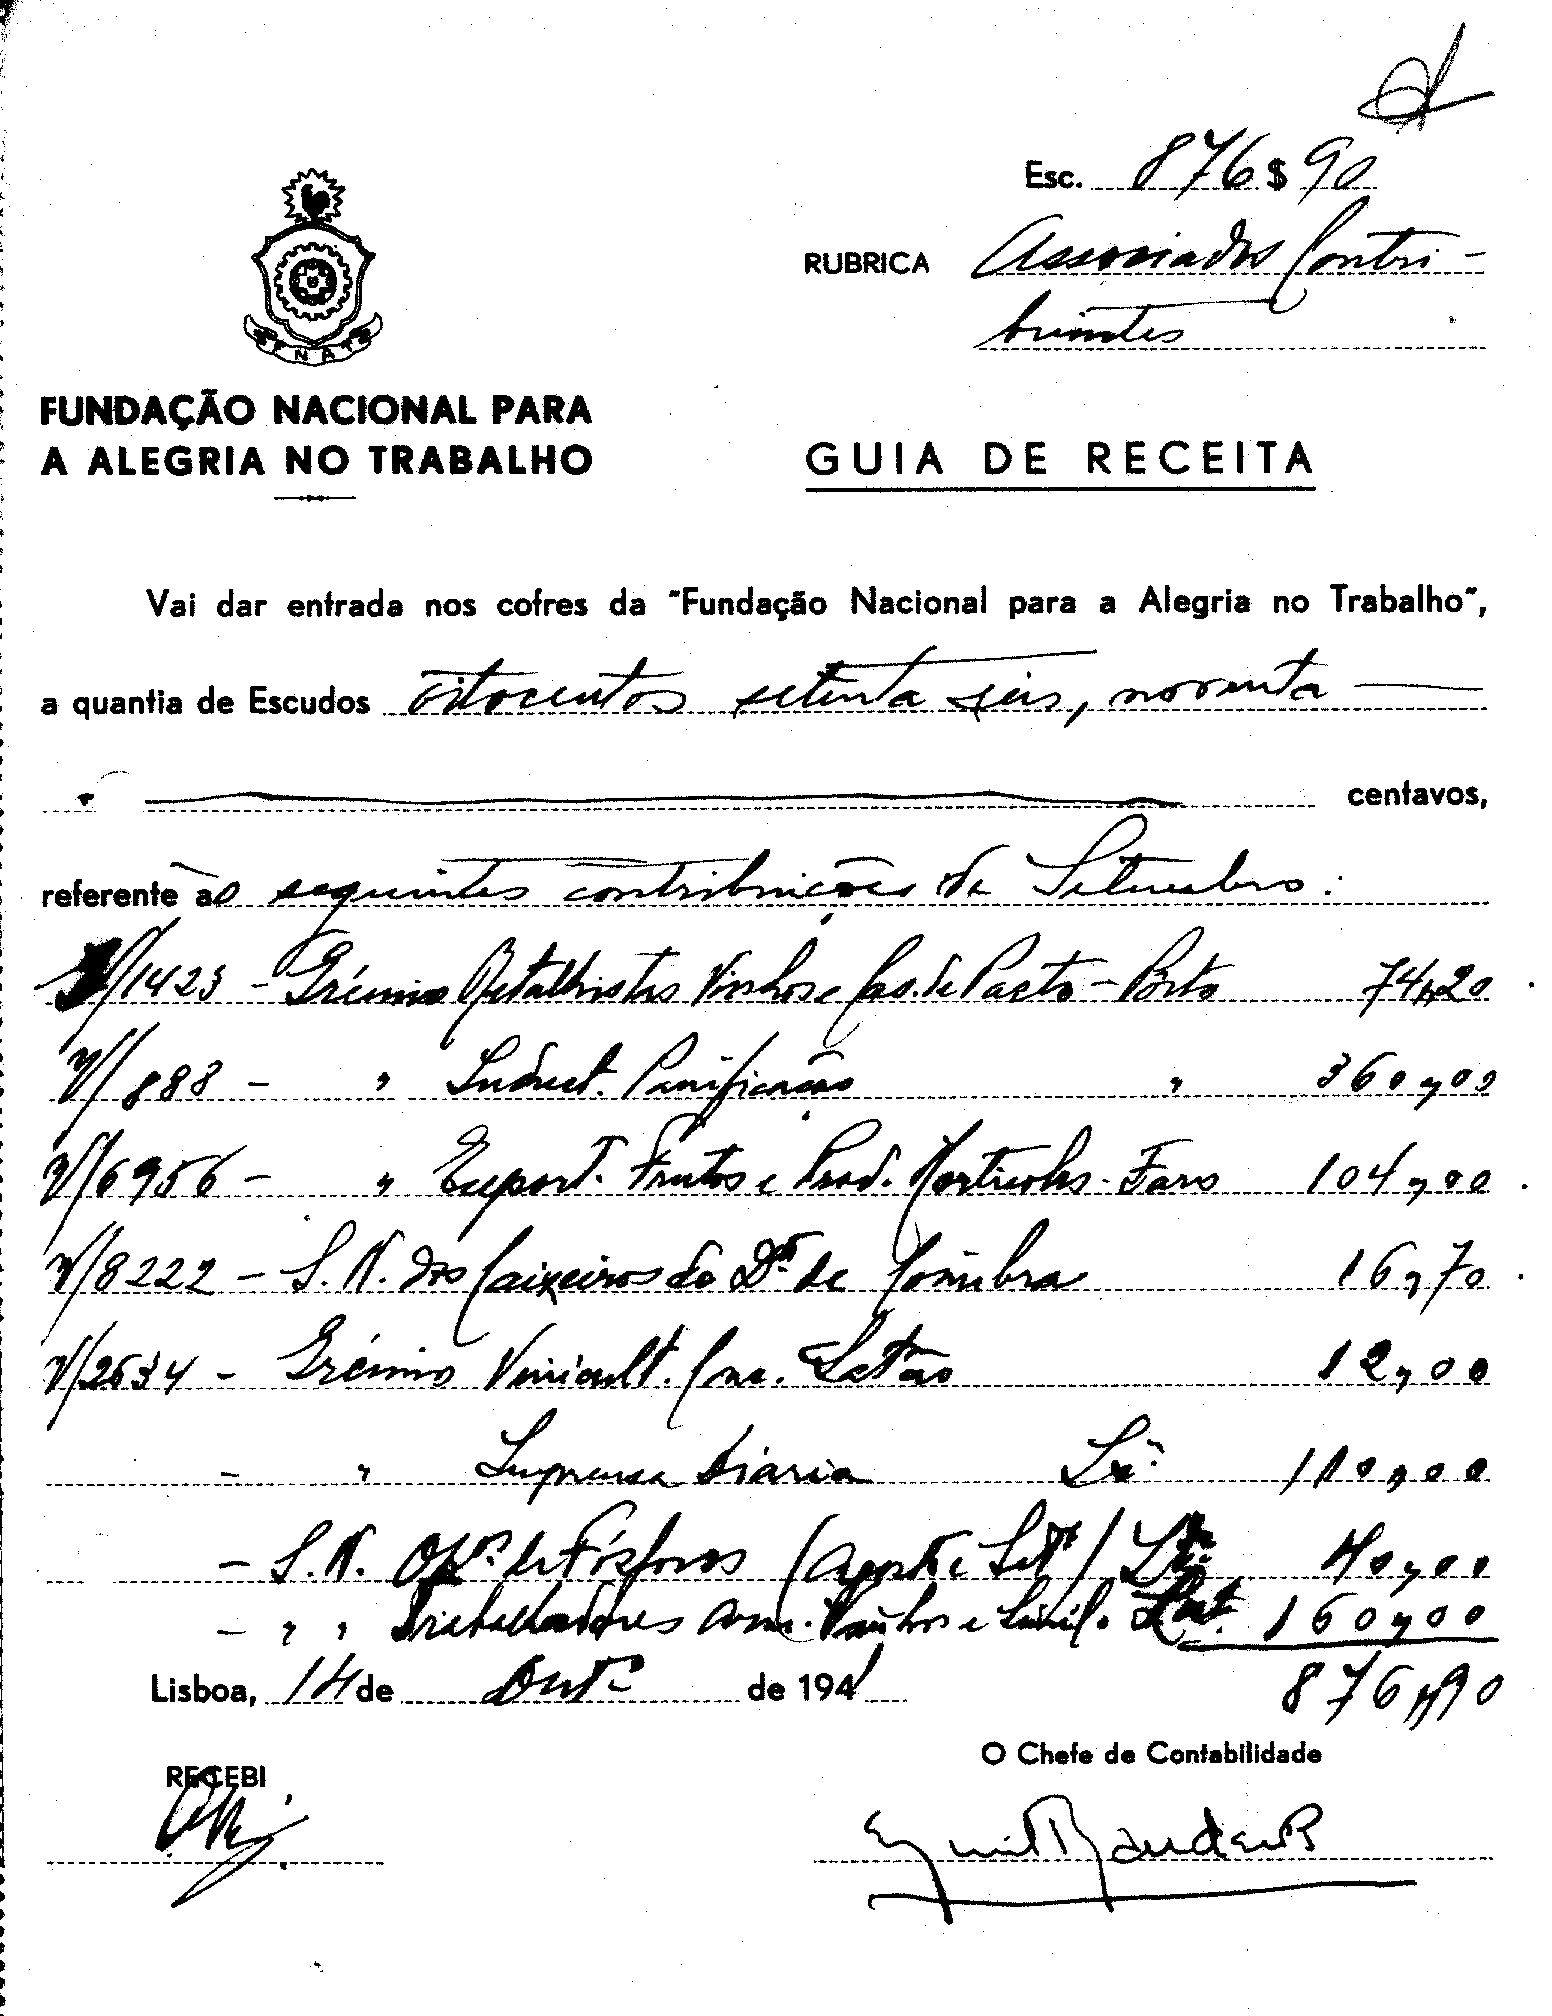 Esc. 876$90
RUBRICA Associados Contri-
buintes
FNAT
FUNDAÇÃO NACIONAL PARA
A ALEGRIA NO TRABALHO
GUIA DE RECEITA
Vai dar entrada nos cofres da "Fundação Nacional para a Alegria no Trabalho",
a quantia de Escudos oitocentos setenta seis, noventa
centavos,
referente ao seguintes contribuições de Setembro:
V/1423 - Grémio Retalhistas Vinhos e Cas. de Pasto - Porto 74,20
V/888 - " Indust. Panificação " 360,00
V/6956 - " Export. Frutos e Prod. Horticolas - Faro 104,00
V/8222 - S. N. dos Caixeiros do D.to de Coimbra 16,70
V/2634 - Grémio Vinicult. 12,00
- " Imprensa Diaria Lx.ª 110,00
- S. N. Op.os de Fósforos (Agosto e Set.º) Lx.ª 40,00
- " " Trabalhadores Arm. Vinhos e Simil. 160,00
876,90
Lisboa, 14 de Out.º de 1941
O Chefe de Contabilidade
RECEBI